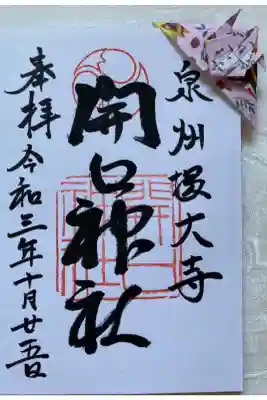 泉州堺大寺
開口神社
奉拝 令和三年十月廿五日